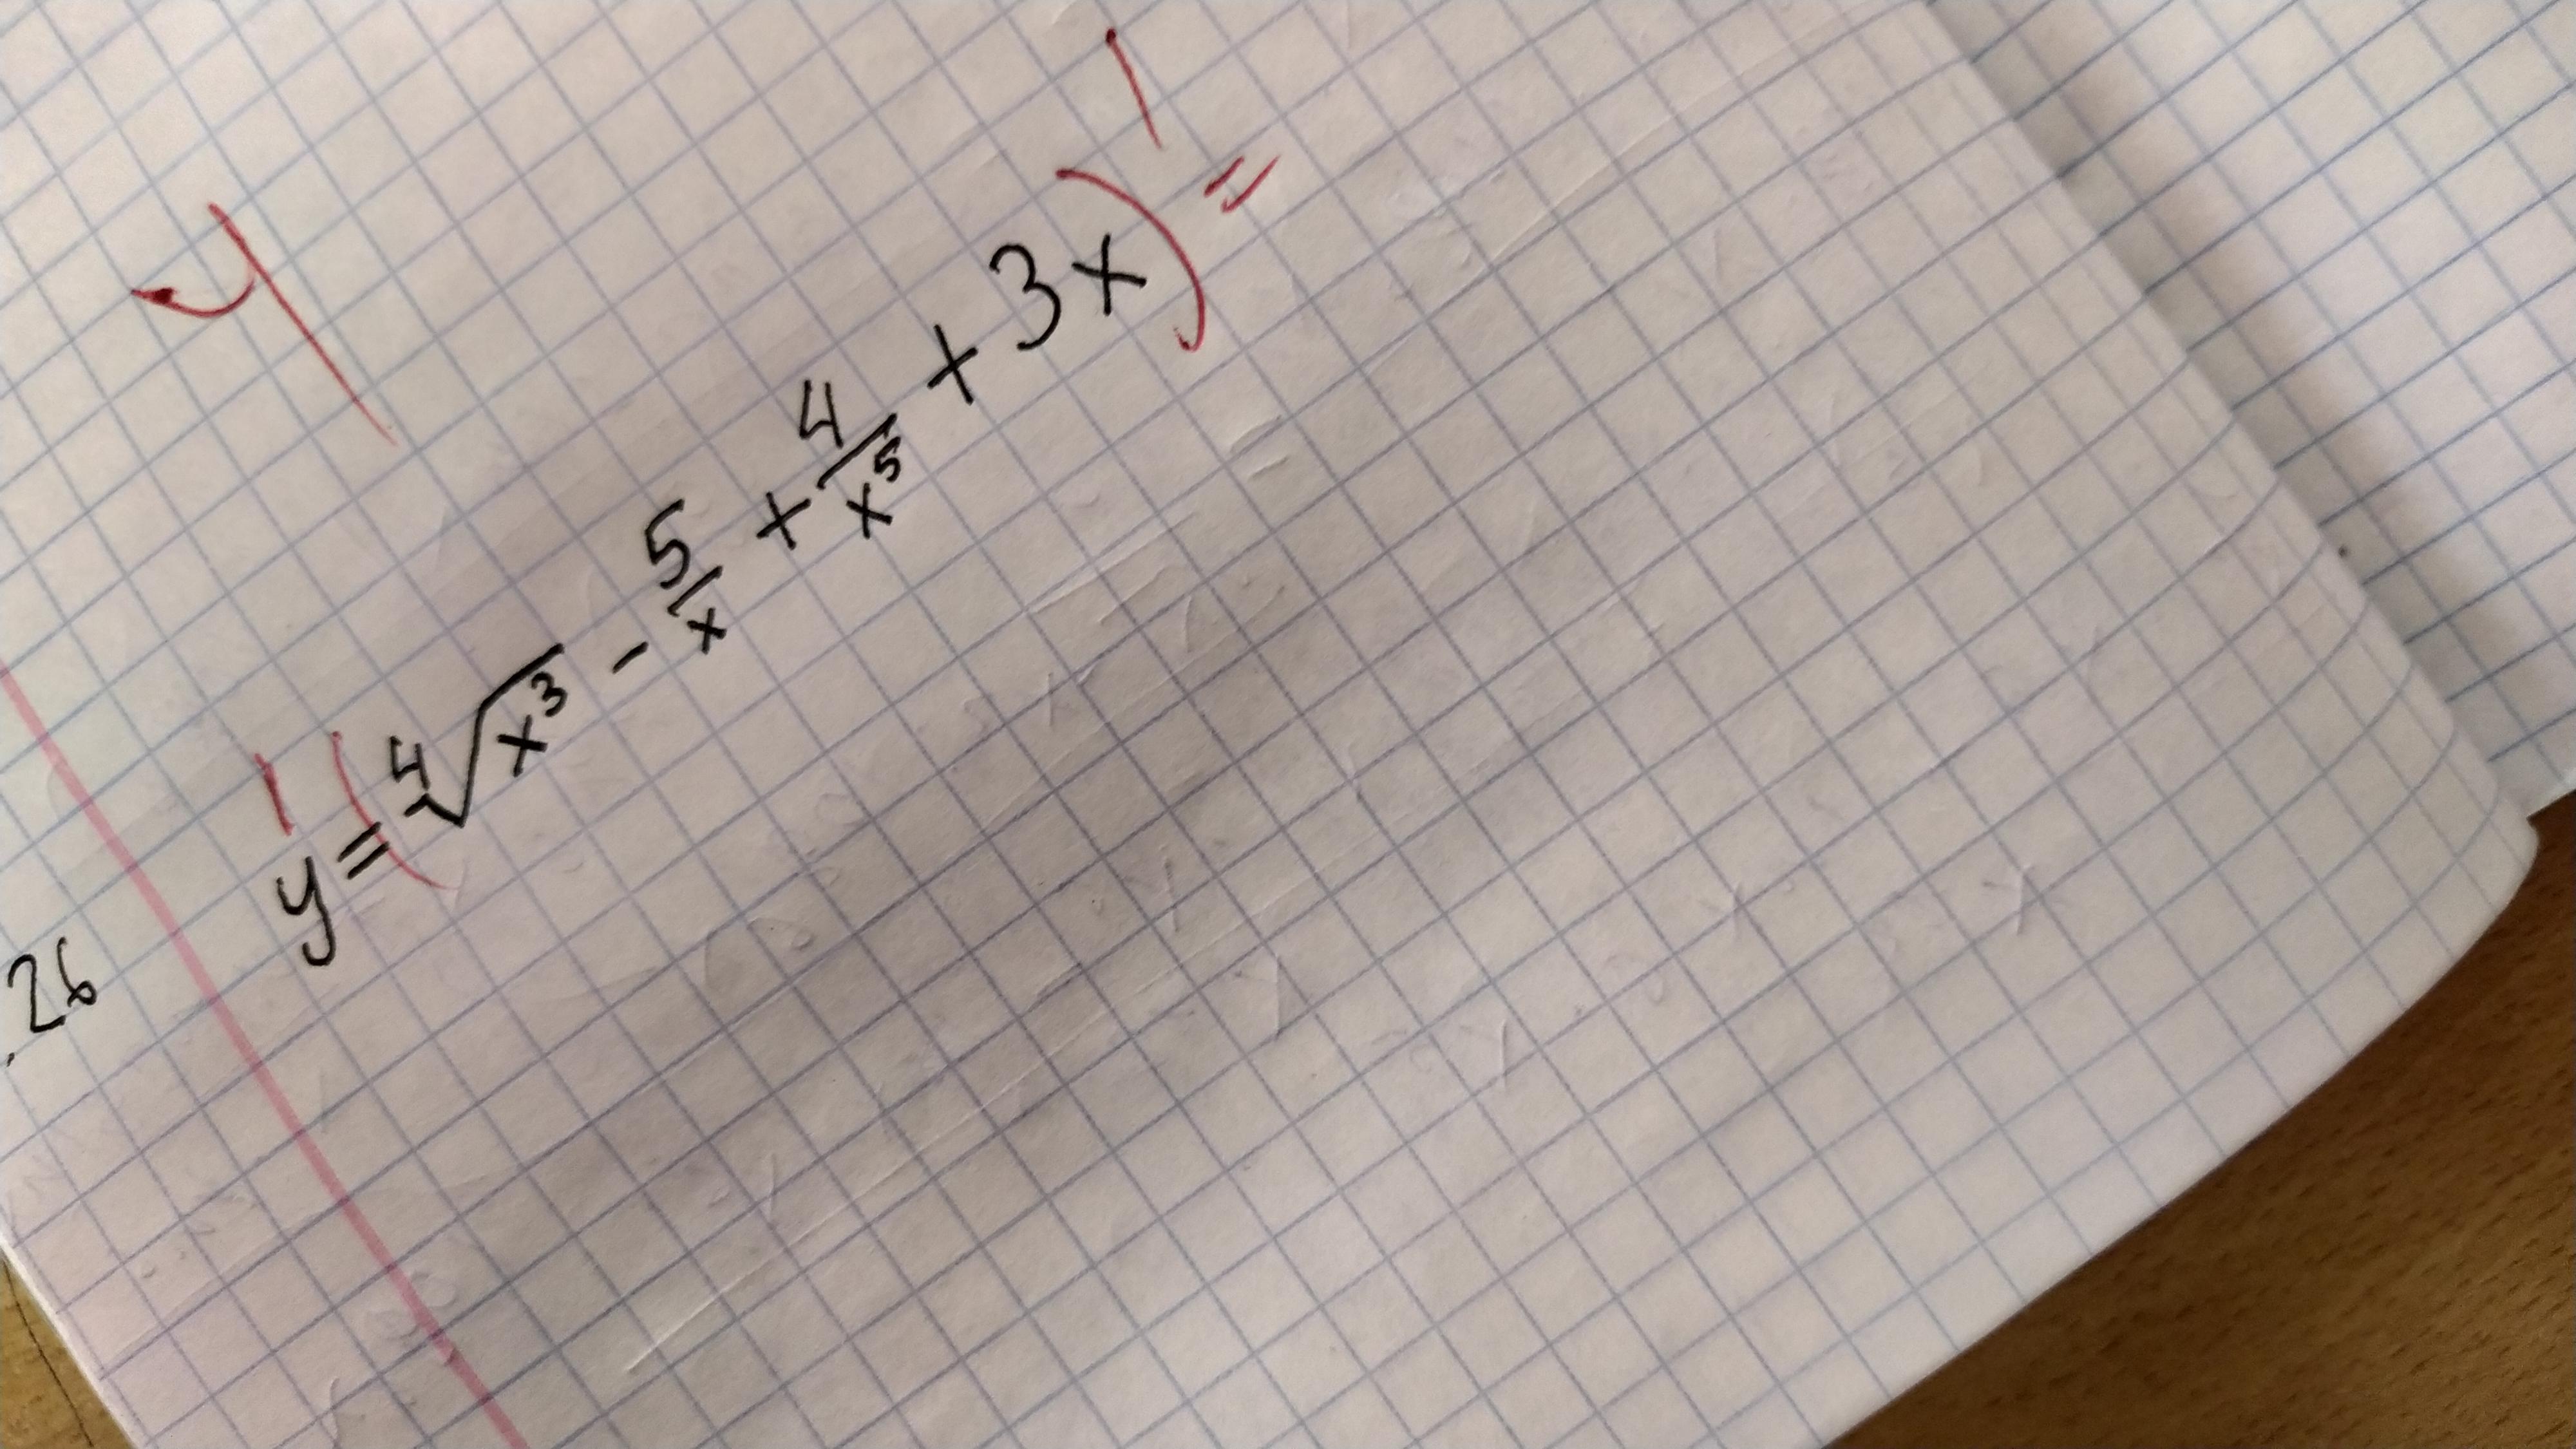 4
.26 y' = (⁴√x³ - 5/x + 4/x⁵ + 3x)' =